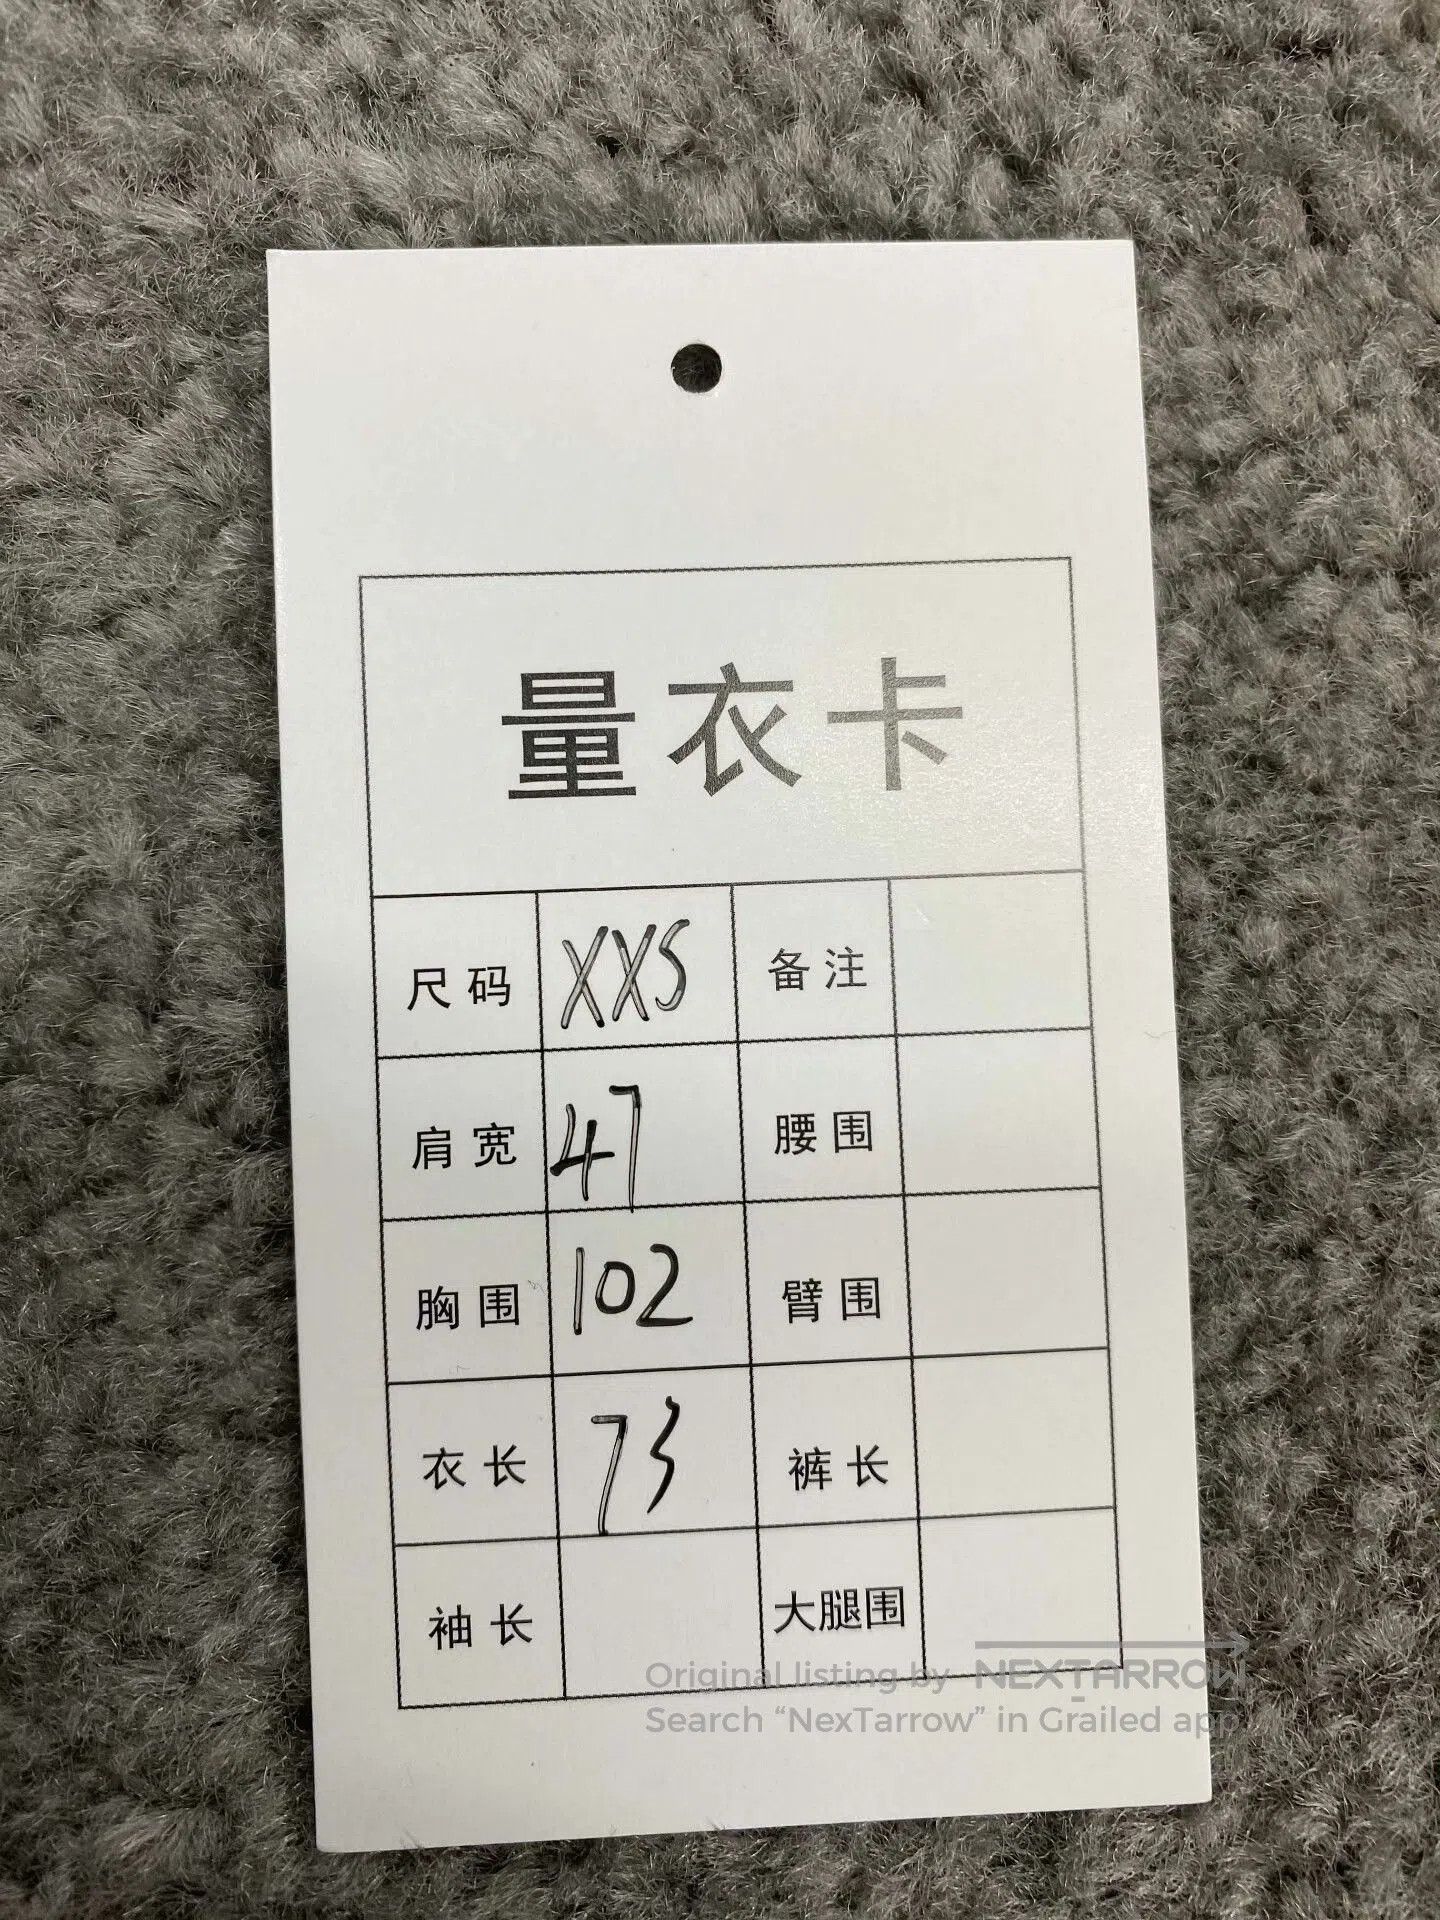 量衣卡
尺码 XXS 备注
肩宽 47 腰围
胸围 102 臂围
衣长 73 裤长
袖长 大腿围
Original listing by NEXTARROW
Search “NexTarrow” in Grailed app